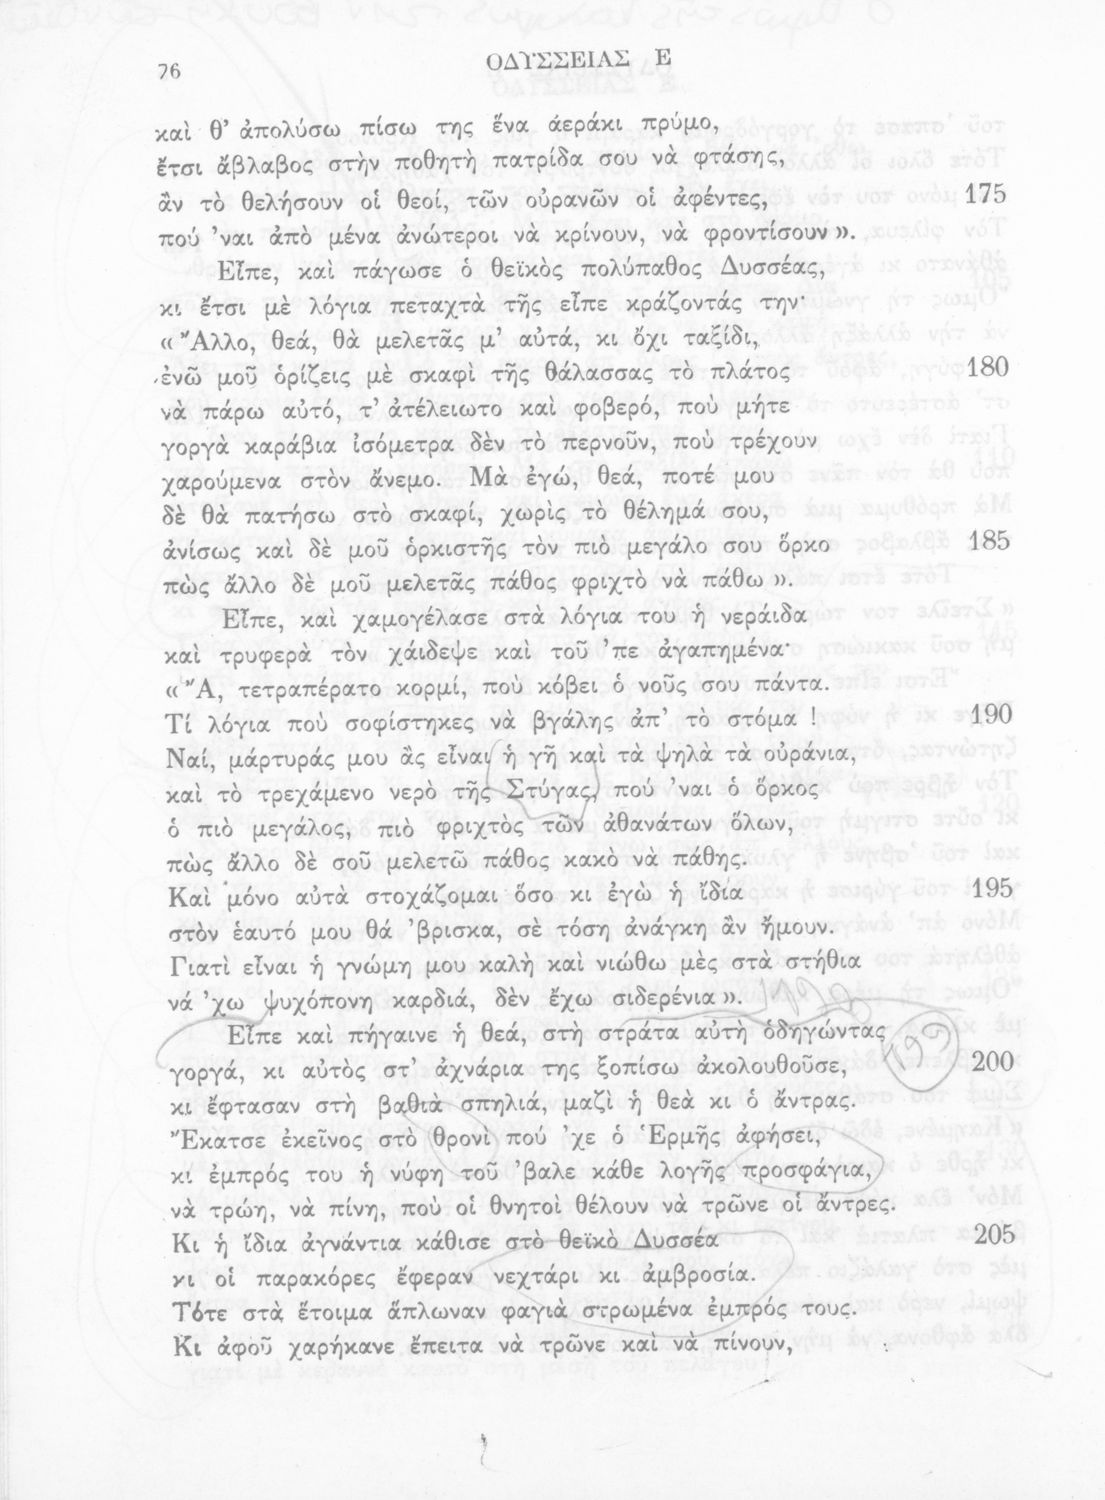 76
ΟΔΥΣΣΕΙΑΣ Ε
καὶ θ’ ἀπολύσω πίσω της ἕνα ἀεράκι πρύμο,
ἔτσι ἄβλαβος στὴν ποθητὴ πατρίδα σου νὰ φτάσης,
ἂν τὸ θελήσουν οἱ θεοί, τῶν οὐρανῶν οἱ ἀφέντες, 175
πού ’ναι ἀπὸ μένα ἀνώτεροι νὰ κρίνουν, νὰ φροντίσουν».
Εἶπε, καὶ πάγωσε ὁ θεϊκὸς πολύπαθος Δυσσέας,
κι ἔτσι μὲ λόγια πεταχτὰ τῆς εἶπε κράζοντάς την·
«Ἄλλο, θεά, θὰ μελετᾶς μ’ αὐτά, κι ὄχι ταξίδι,
ἐνῶ μοῦ ὁρίζεις μὲ σκαφὶ τῆς θάλασσας τὸ πλάτος 180
νὰ πάρω αὐτό, τ’ ἀτέλειωτο καὶ φοβερό, ποὺ μήτε
γοργὰ καράβια ἰσόμετρα δὲν τὸ περνοῦν, ποὺ τρέχουν
χαρούμενα στὸν ἄνεμο. Μὰ ἐγώ, θεά, ποτέ μου
δὲ θὰ πατήσω στὸ σκαφί, χωρὶς τὸ θέλημά σου,
ἀνίσως καὶ δὲ μοῦ ὁρκιστῆς τὸν πιὸ μεγάλο σου ὅρκο 185
πὼς ἄλλο δὲ μοῦ μελετᾶς πάθος φριχτὸ νὰ πάθω».
Εἶπε, καὶ χαμογέλασε στὰ λόγια του ἡ νεράιδα
καὶ τρυφερὰ τὸν χάιδεψε καὶ τοῦ ’πε ἀγαπημένα·
«Ἄ, τετραπέρατο κορμί, ποὺ κόβει ὁ νοῦς σου πάντα.
Τί λόγια ποὺ σοφίστηκες νὰ βγάλης ἀπ’ τὸ στόμα ! 190
Ναί, μάρτυράς μου ἂς εἶναι ἡ γῆ καὶ τὰ ψηλὰ τὰ οὐράνια,
καὶ τὸ τρεχάμενο νερὸ τῆς Στύγας, πού ’ναι ὁ ὅρκος
ὁ πιὸ μεγάλος, πιὸ φριχτὸς τῶν ἀθανάτων ὅλων,
πὼς ἄλλο δὲ σοῦ μελετῶ πάθος κακὸ νὰ πάθης.
Καὶ μόνο αὐτὰ στοχάζομαι ὅσο κι ἐγὼ ἡ ἴδια 195
στὸν ἑαυτό μου θά ’βρισκα, σὲ τόση ἀνάγκη ἂν ἤμουν.
Γιατὶ εἶναι ἡ γνώμη μου καλὴ καὶ νιώθω μὲς στὰ στήθια
νά ’χω ψυχόπονη καρδιά, δὲν ἔχω σιδερένια».
Εἶπε καὶ πήγαινε ἡ θεά, στὴ στράτα αὐτὴ ὁδηγώντας
199
γοργά, κι αὐτὸς στ’ ἀχνάρια της ξοπίσω ἀκολουθοῦσε, 200
κι ἔφτασαν στὴ βαθιὰ σπηλιά, μαζὶ ἡ θεὰ κι ὁ ἄντρας.
Ἔκατσε ἐκεῖνος στὸ θρονὶ πού ’χε ὁ Ἑρμῆς ἀφήσει,
κι ἐμπρός του ἡ νύφη τοῦ ’βαλε κάθε λογῆς προσφάγια,
νὰ τρώη, νὰ πίνη, ποὺ οἱ θνητοὶ θέλουν νὰ τρῶνε οἱ ἄντρες.
Κι ἡ ἴδια ἀγνάντια κάθισε στὸ θεϊκὸ Δυσσέα 205
κι οἱ παρακόρες ἔφεραν νεχτάρι κι ἀμβροσία.
Τότε στὰ ἕτοιμα ἅπλωναν φαγιὰ στρωμένα ἐμπρός τους.
Κι ἀφοῦ χαρήκανε ἔπειτα νὰ τρῶνε καὶ νὰ πίνουν,